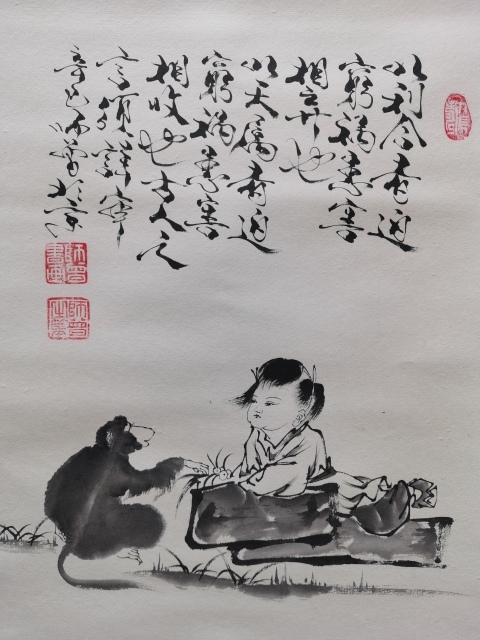 以利合者迫
窮禍患害
相弃也
以天屬者迫
窮禍患害
相收也古人之
言須詳審
辛巳師曾北京